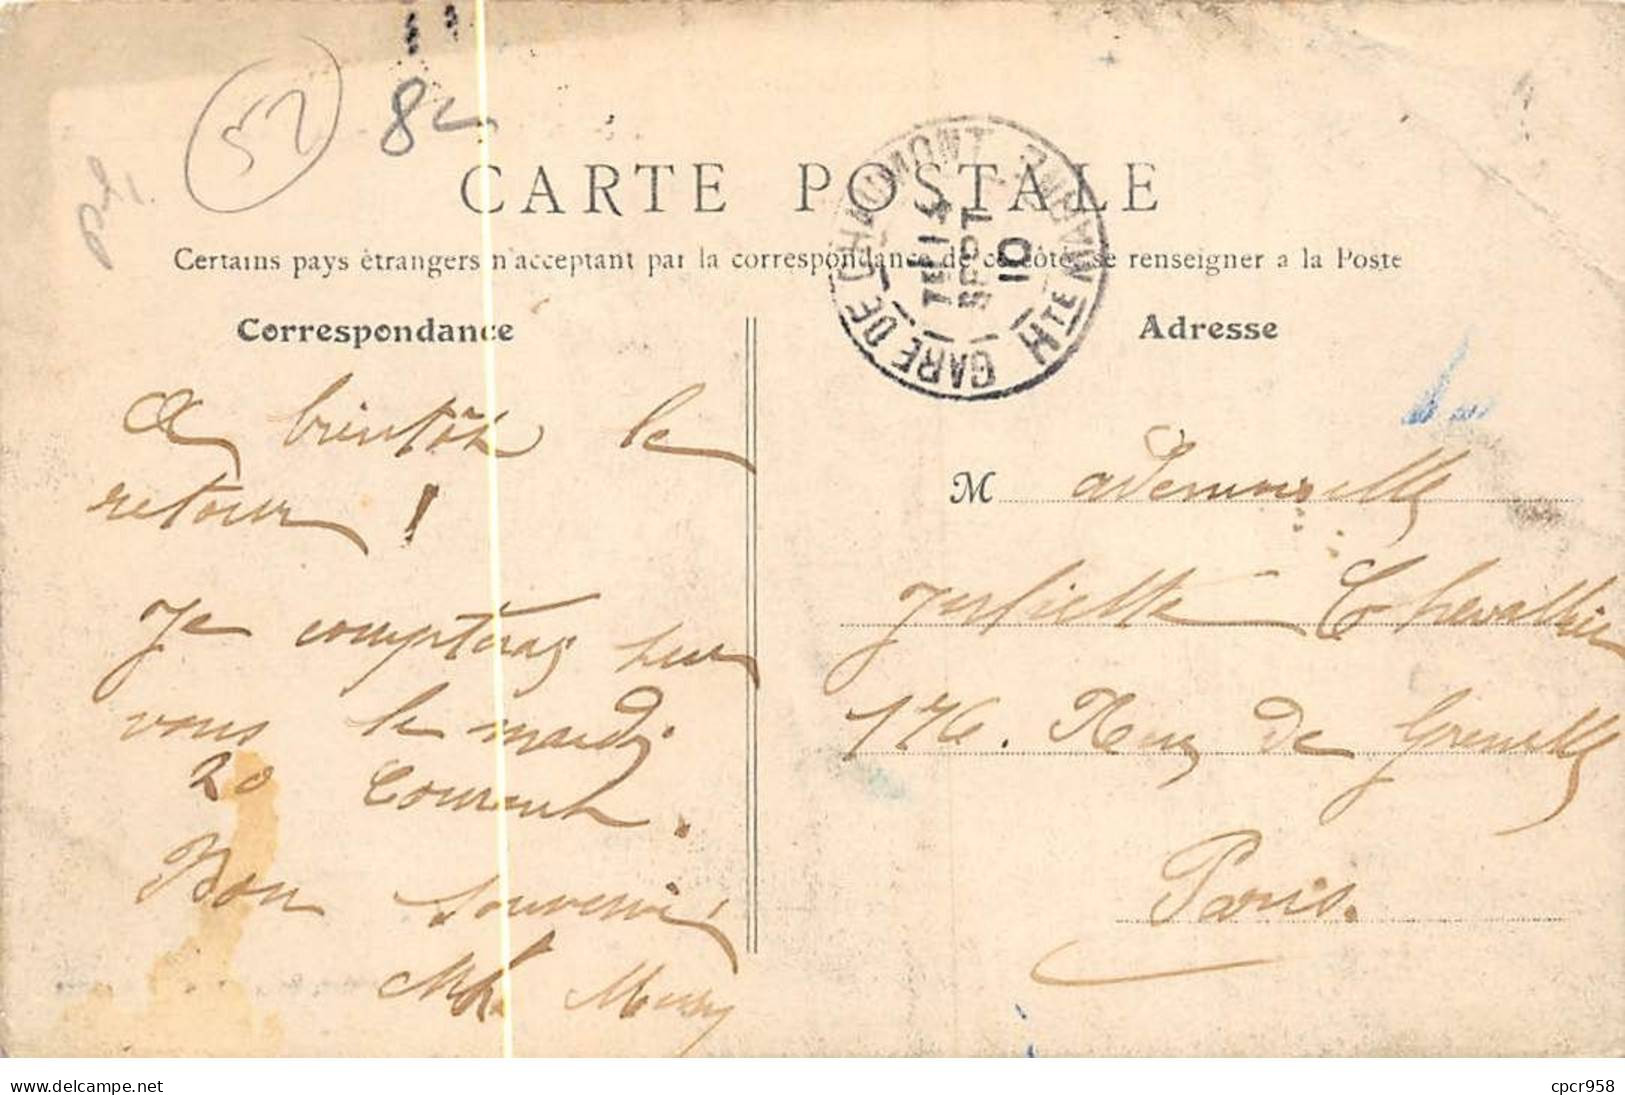 52
82
CARTE POSTALE
Certains pays étrangers n'acceptant pas la correspondance de ce côté, se renseigner à la Poste
GARE DE CHAUMONT
HTE MARNE
14
SEPT
10
Correspondance
A bientôt le
retour !
Je compterai sur
vous le mardi
20 Courant.
Bon souvenir
Adresse
M ademoiselle
Juliette Chevallier
176. Rue de Grenelle
Paris.
www.delcampe.net
cpcr958